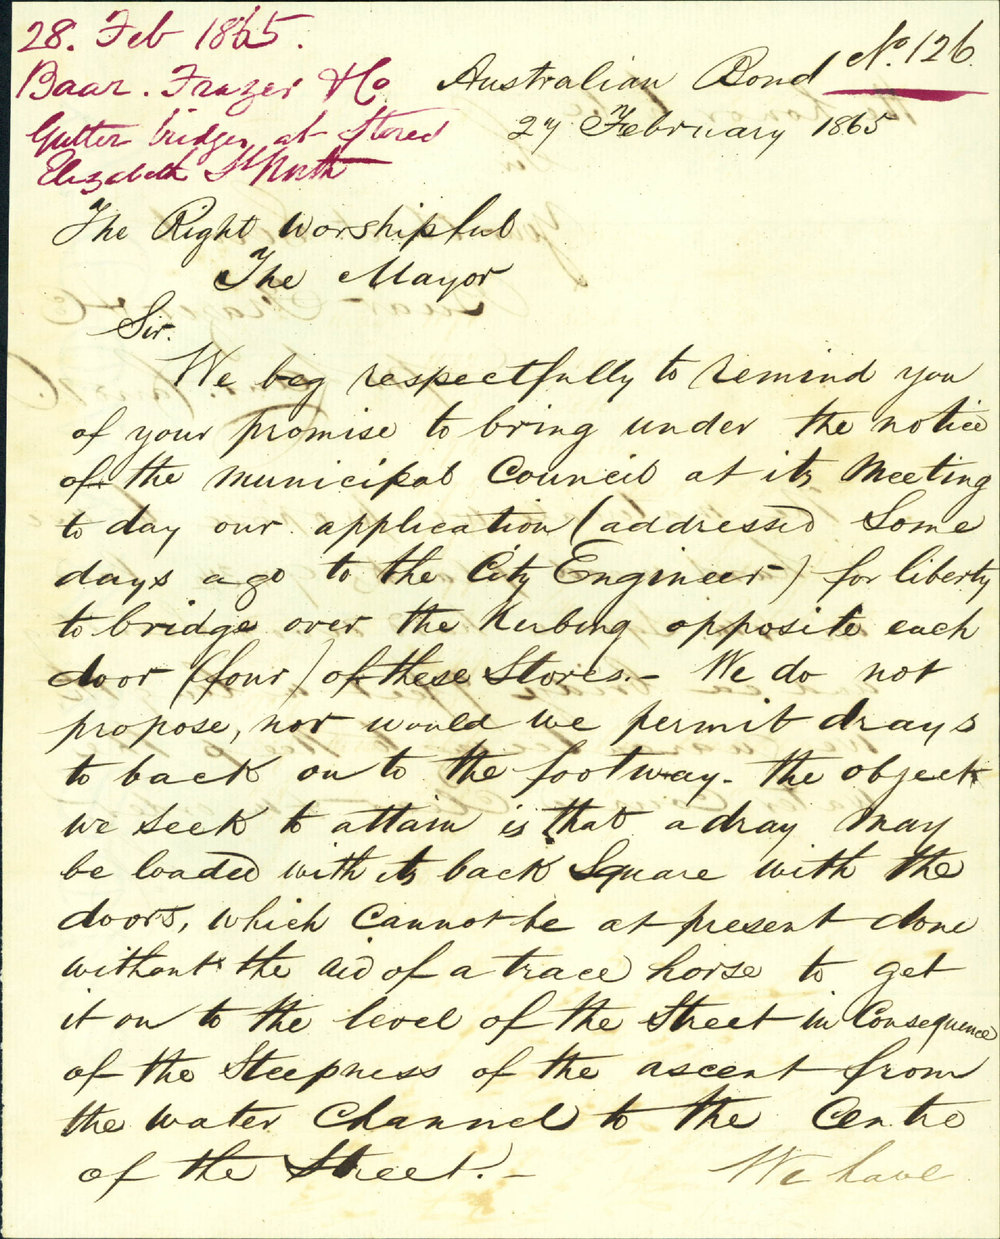 28. Feb 1865.
Baar. Frazer & Co
Gutter bridges at Stores
Elizabeth St North
No. 126.
Australian Bond
27 February 1865
The Right Worshipful
The Mayor
Sir.
We beg respectfully to remind you
of your promise to bring under the notice
of the Municipal Council at its Meeting
to day our application (addressed Some
days ago to the City Engineer) for liberty
to bridge over the Kerbing opposite each
door (four) of these Stores. - We do not
propose, nor would we permit drays
to back on to the footway - the object
we seek to attain is that a dray may
be loaded with its back Square with the
doors, which cannot be at present done
without the aid of a trace horse to get
it on to the level of the Street in Consequence
of the Steepness of the ascent from
the water Channel to the Centre
of the Street. -
We have